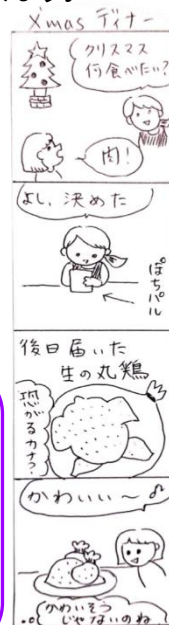 X'mas ディナー
クリスマス
何食べたい?
肉!
よし、決めた
ぱちパル
後日届いた
生の丸鶏
恐がるカナ?
かわいい〜♪
かわいそう
じゃないのね